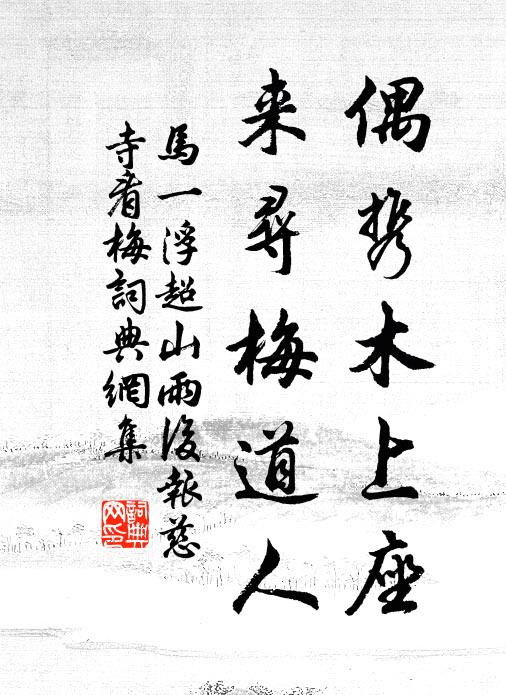 偶携木上座
来尋梅道人
馬一浮超山雨後報慈
寺看梅詞典網集
詞典
网印